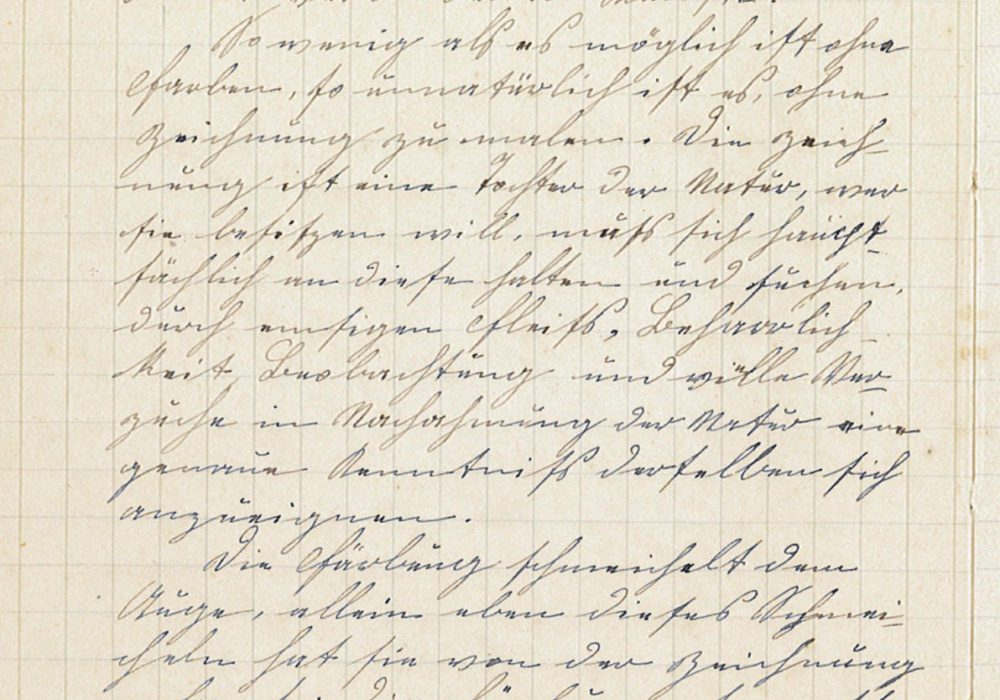 So wenig als es möglich ist ohne
Farben, so unnatürlich ist es, ohne
Zeichnung zu malen. Die Zeich-
nung ist eine Tochter der Natur, wer
sie besitzen will, muß sich haupt-
sächlich an diese halten und suchen,
durch emsigen Fleiß, Beharrlich-
keit, Beobachtung und viele Ver-
suche in Nachahmung der Natur eine
genaue Kenntniß derselben sich
anzueignen.
Die Färbung schmeichelt dem
Auge, allein eben dieses Schmei-
cheln hat sie von der Zeichnung